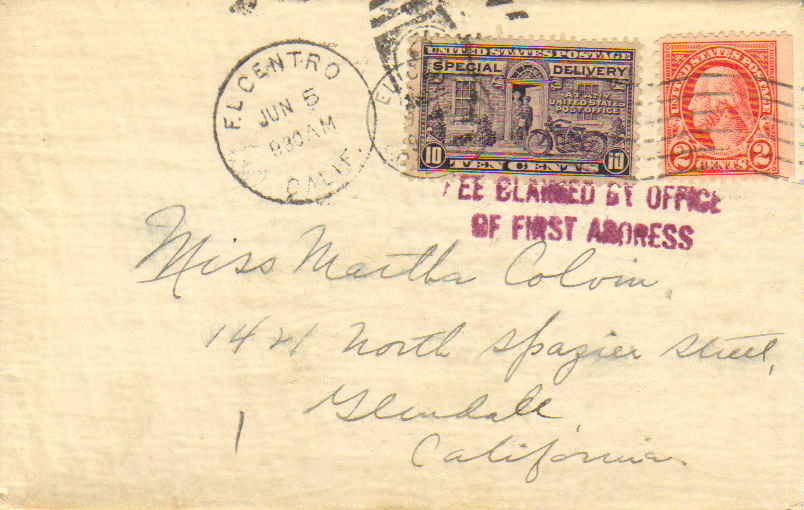 EL CENTRO
JUN 5
830 AM
CALIF.
UNITED STATES POSTAGE
SPECIAL DELIVERY
AT ANY
UNITED STATES
POST OFFICE
10 TEN CENTS 10
UNITED STATES POSTAGE
2 CENTS 2
FEE CLAIMED BY OFFICE
OF FIRST ADDRESS
Miss Martha Colvin,
1421 North Spazier Street,
Glendale,
California.